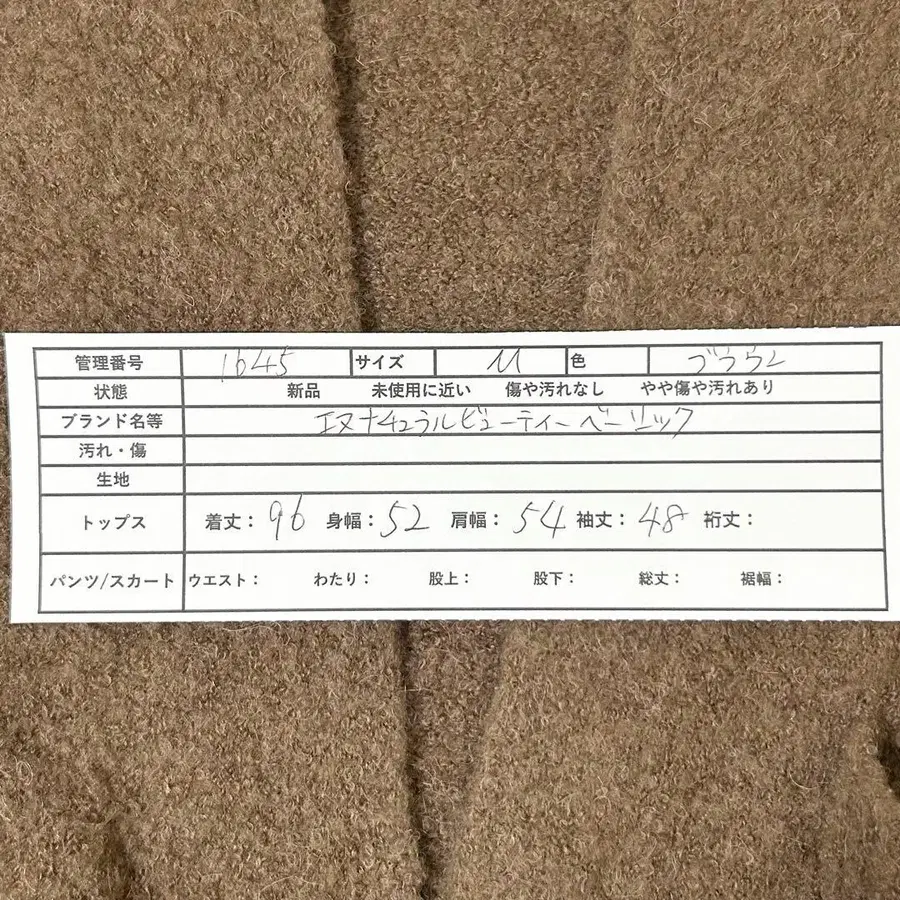 管理番号 1645 サイズ M 色 ブラウン
状態 新品 未使用に近い 傷や汚れなし やや傷や汚れあり
ブランド名等 エヌナチュラルビューティーベーシック
汚れ・傷
生地
トップス 着丈： 96 身幅： 52 肩幅： 54 袖丈： 48 裄丈：
パンツ/スカート ウエスト： わたり： 股上： 股下： 総丈： 裾幅：